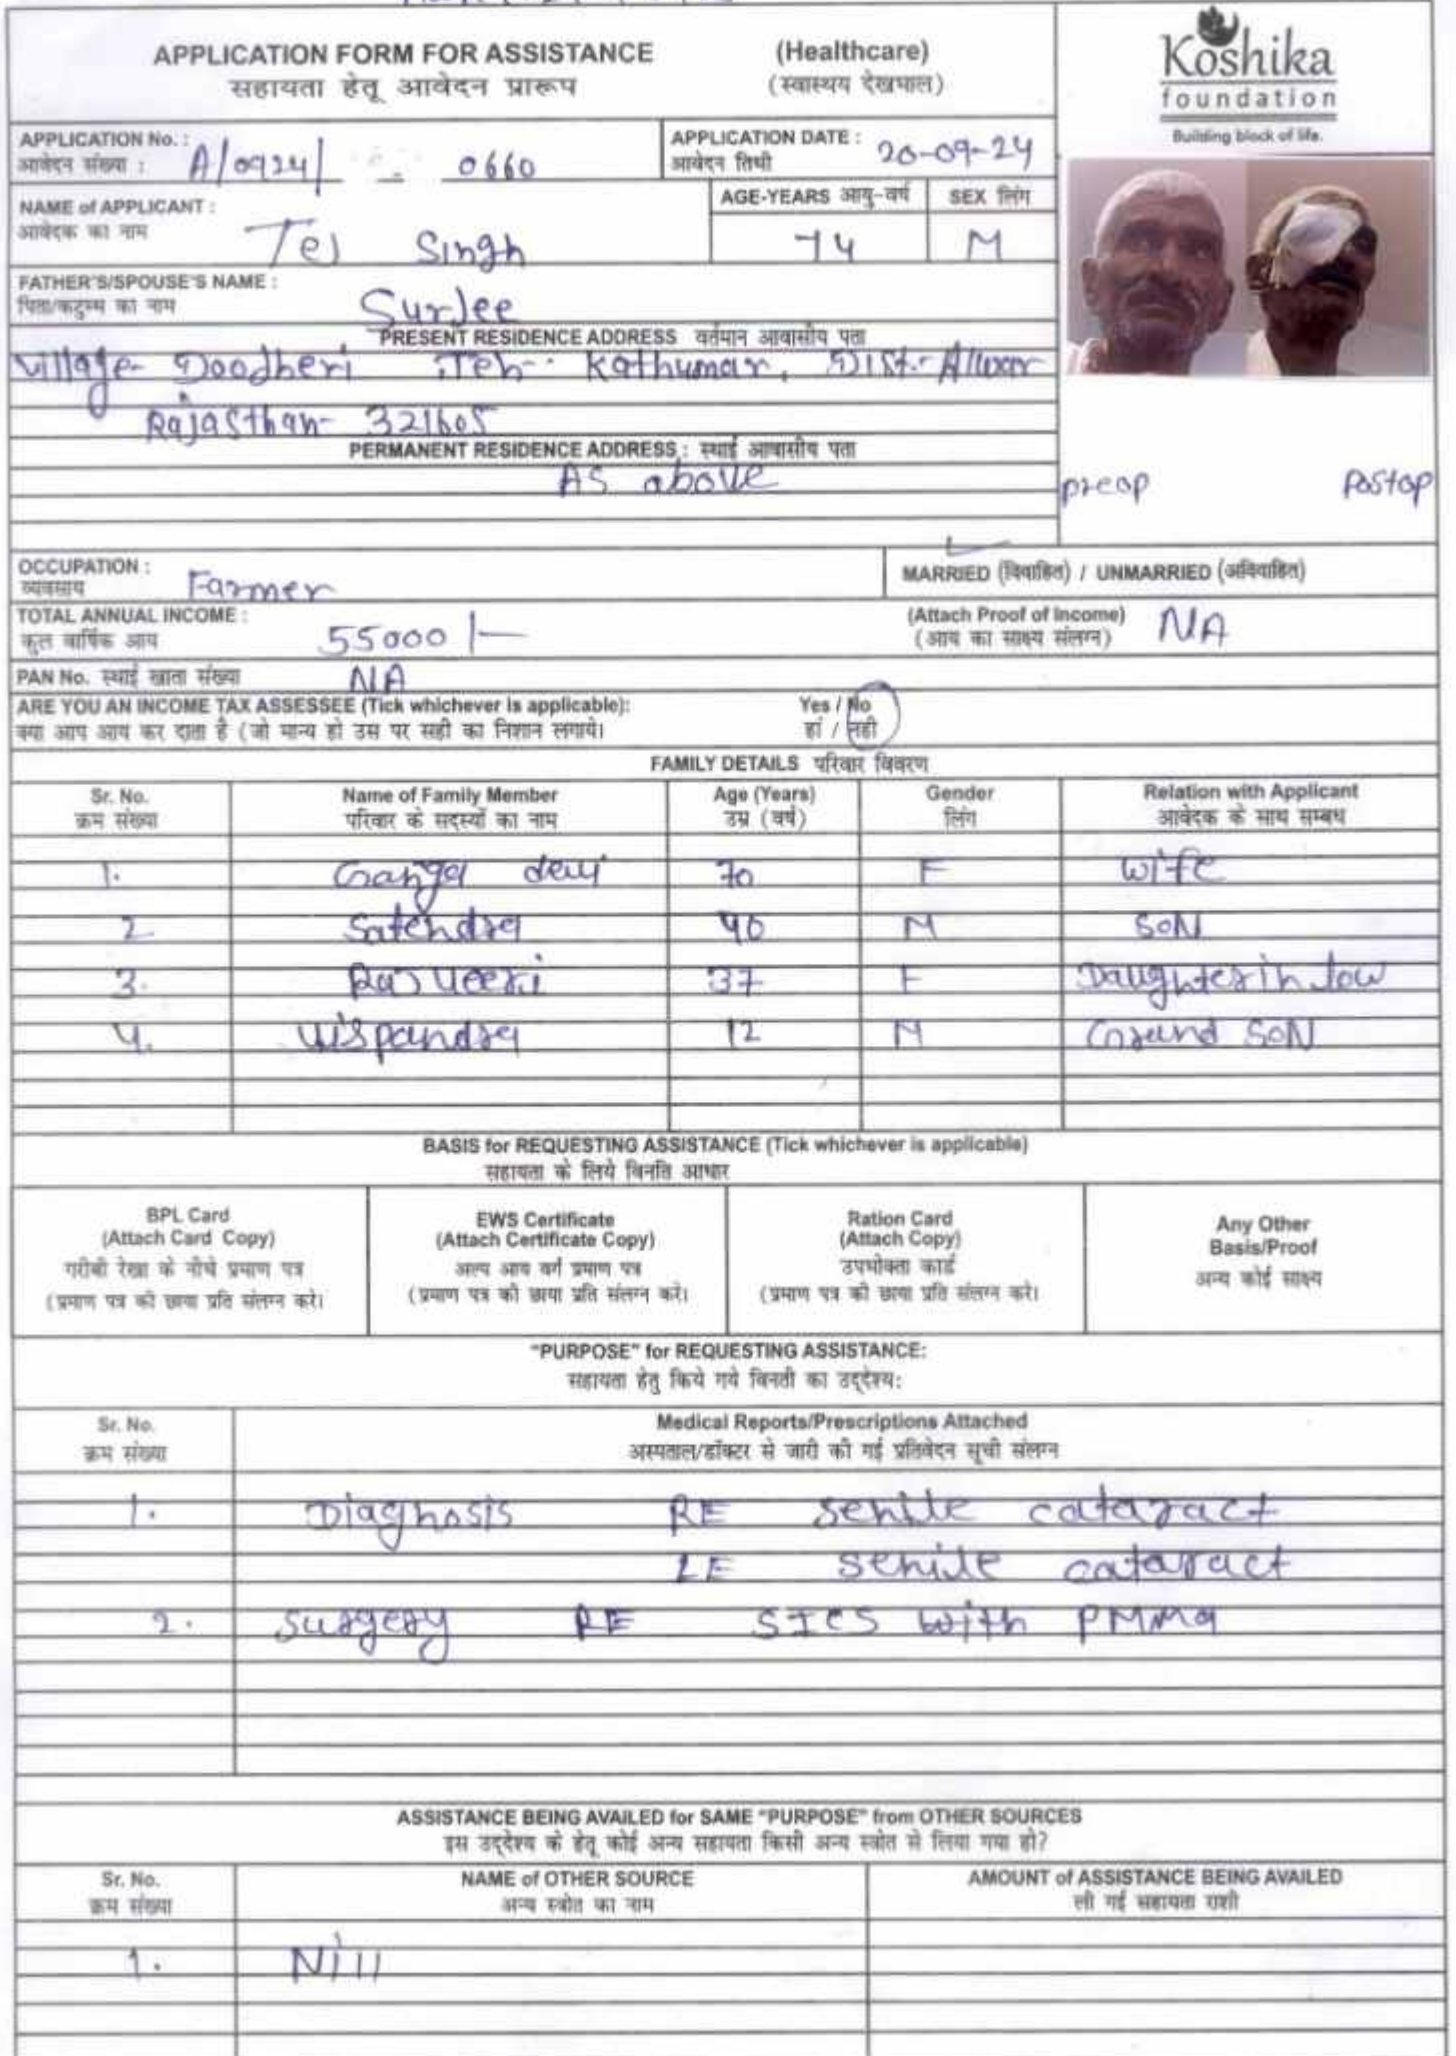 APPLICATION FORM FOR ASSISTANCE (Healthcare)
सहायता हेतू आवेदन प्रारूप (स्वास्थय देखभाल)
Koshika
foundation
Building block of life.
APPLICATION No. : A/0924/ - 0660
आवेदन संख्या :
APPLICATION DATE : 20-09-24
आवेदन तिथी
NAME of APPLICANT : Tej Singh
आवेदक का नाम
AGE-YEARS आयु-वर्ष SEX लिंग
74 M
FATHER'S/SPOUSE'S NAME : Surjee
पिता/कटुम्ब का नाम
PRESENT RESIDENCE ADDRESS वर्तमान आवासीय पता
Village- Doodheri Teh- Kathumar, Dist- Alwar
Rajasthan- 321605
PERMANENT RESIDENCE ADDRESS : स्थाई आवासीय पता
AS above
preop postop
OCCUPATION : Farmer
व्यवसाय
MARRIED (विवाहित) / UNMARRIED (अविवाहित)
TOTAL ANNUAL INCOME : 55000/-
कुल वार्षिक आय
(Attach Proof of Income) NA
(आय का साक्ष्य संलग्न)
PAN No. स्थाई खाता संख्या NA
ARE YOU AN INCOME TAX ASSESSEE (Tick whichever is applicable): Yes / No
क्या आप आय कर दाता है (जो मान्य हो उस पर सही का निशान लगाये। हां / नही
FAMILY DETAILS परिवार विवरण
Sr. No. Name of Family Member Age (Years) Gender Relation with Applicant
क्रम संख्या परिवार के सदस्यों का नाम उम्र (वर्ष) लिंग आवेदक के साथ सम्बध
1. Ganga devi 70 F wife
2 Satendra 40 M SON
3. Rajveeri 37 F Daughter in law
4. Vispandra 12 M Grand SON
BASIS for REQUESTING ASSISTANCE (Tick whichever is applicable)
सहायता के लिये विनति आधार
BPL Card
(Attach Card Copy)
गरीबी रेखा के नीचे प्रमाण पत्र
(प्रमाण पत्र की छाया प्रति संलग्न करे।
EWS Certificate
(Attach Certificate Copy)
अल्प आय वर्ग प्रमाण पत्र
(प्रमाण पत्र की छाया प्रति संलग्न करे।
Ration Card
(Attach Copy)
उपभोक्ता कार्ड
(प्रमाण पत्र की छाया प्रति संलग्न करे।
Any Other
Basis/Proof
अन्य कोई साक्ष्य
"PURPOSE" for REQUESTING ASSISTANCE:
सहायता हेतु किये गये विनती का उद्देश्य:
Sr. No. Medical Reports/Prescriptions Attached
क्रम संख्या अस्पताल/डॉक्टर से जारी की गई प्रतिवेदन सूची संलग्न
1. Diagnosis RE senile cataract
LE senile cataract
2. surgery RE SICS with PMMA
ASSISTANCE BEING AVAILED for SAME "PURPOSE" from OTHER SOURCES
इस उद्देश्य के हेतू कोई अन्य सहायता किसी अन्य स्त्रोत से लिया गया हो?
Sr. No. NAME of OTHER SOURCE AMOUNT of ASSISTANCE BEING AVAILED
क्रम संख्या अन्य स्त्रोत का नाम ली गई सहायता राशी
1. Nill